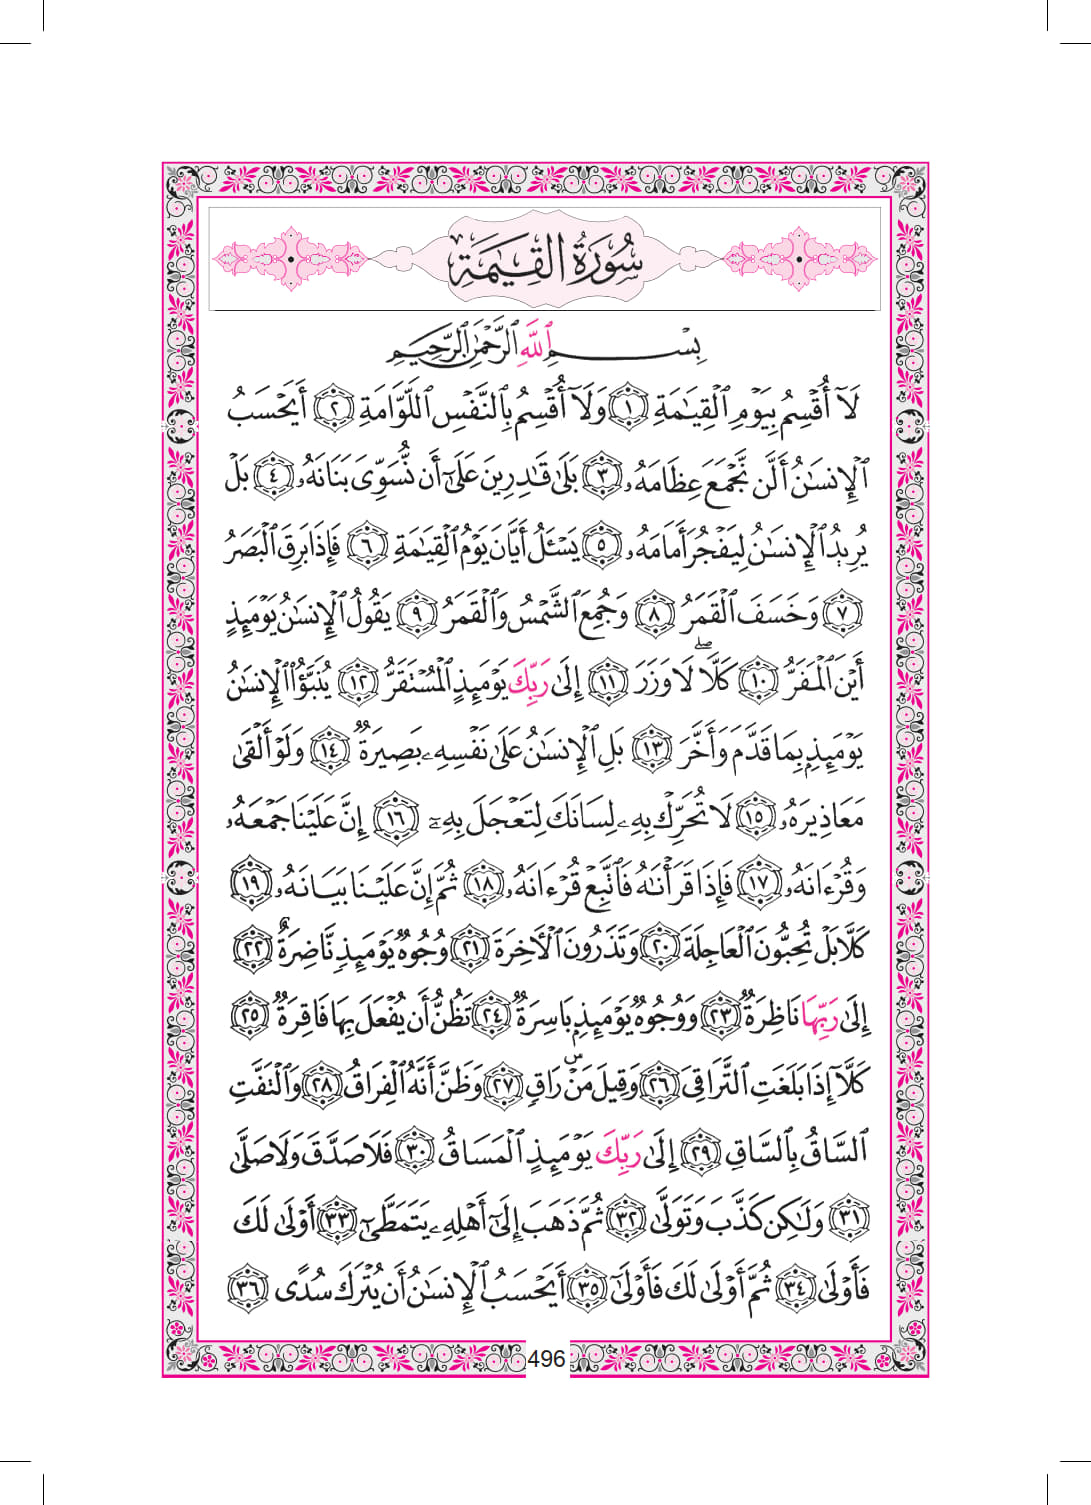 سُورَةُ الْقِيَٰمَةِ
بِسْمِ ٱللَّهِ ٱلرَّحْمَٰنِ ٱلرَّحِيمِ
لَآ أُقْسِمُ بِيَوْمِ ٱلْقِيَٰمَةِ ﴿١﴾ وَلَآ أُقْسِمُ بِٱلنَّفْسِ ٱللَّوَّامَةِ ﴿٢﴾ أَيَحْسَبُ
ٱلْإِنسَٰنُ أَلَّن نَّجْمَعَ عِظَامَهُۥ ﴿٣﴾ بَلَىٰ قَٰدِرِينَ عَلَىٰٓ أَن نُّسَوِّىَ بَنَانَهُۥ ﴿٤﴾ بَلْ
يُرِيدُ ٱلْإِنسَٰنُ لِيَفْجُرَ أَمَامَهُۥ ﴿٥﴾ يَسْـَٔلُ أَيَّانَ يَوْمُ ٱلْقِيَٰمَةِ ﴿٦﴾ فَإِذَا بَرِقَ ٱلْبَصَرُ
﴿٧﴾ وَخَسَفَ ٱلْقَمَرُ ﴿٨﴾ وَجُمِعَ ٱلشَّمْسُ وَٱلْقَمَرُ ﴿٩﴾ يَقُولُ ٱلْإِنسَٰنُ يَوْمَئِذٍ
أَيْنَ ٱلْمَفَرُّ ﴿١٠﴾ كَلَّا لَا وَزَرَ ﴿١١﴾ إِلَىٰ رَبِّكَ يَوْمَئِذٍ ٱلْمُسْتَقَرُّ ﴿١٢﴾ يُنَبَّؤُا۟ ٱلْإِنسَٰنُ
يَوْمَئِذٍۭ بِمَا قَدَّمَ وَأَخَّرَ ﴿١٣﴾ بَلِ ٱلْإِنسَٰنُ عَلَىٰ نَفْسِهِۦ بَصِيرَةٌ ﴿١٤﴾ وَلَوْ أَلْقَىٰ
مَعَاذِيرَهُۥ ﴿١٥﴾ لَا تُحَرِّكْ بِهِۦ لِسَانَكَ لِتَعْجَلَ بِهِۦٓ ﴿١٦﴾ إِنَّ عَلَيْنَا جَمْعَهُۥ
وَقُرْءَانَهُۥ ﴿١٧﴾ فَإِذَا قَرَأْنَٰهُ فَٱتَّبِعْ قُرْءَانَهُۥ ﴿١٨﴾ ثُمَّ إِنَّ عَلَيْنَا بَيَانَهُۥ ﴿١٩﴾
كَلَّا بَلْ تُحِبُّونَ ٱلْعَاجِلَةَ ﴿٢٠﴾ وَتَذَرُونَ ٱلْءَاخِرَةَ ﴿٢١﴾ وُجُوهٌ يَوْمَئِذٍ نَّاضِرَةٌ ﴿٢٢﴾
إِلَىٰ رَبِّهَا نَاظِرَةٌ ﴿٢٣﴾ وَوُجُوهٌ يَوْمَئِذٍۭ بَاسِرَةٌ ﴿٢٤﴾ تَظُنُّ أَن يُفْعَلَ بِهَا فَاقِرَةٌ ﴿٢٥﴾
كَلَّآ إِذَا بَلَغَتِ ٱلتَّرَاقِىَ ﴿٢٦﴾ وَقِيلَ مَنْ ۜ رَاقٍ ﴿٢٧﴾ وَظَنَّ أَنَّهُ ٱلْفِرَاقُ ﴿٢٨﴾ وَٱلْتَفَّتِ
ٱلسَّاقُ بِٱلسَّاقِ ﴿٢٩﴾ إِلَىٰ رَبِّكَ يَوْمَئِذٍ ٱلْمَسَاقُ ﴿٣٠﴾ فَلَا صَدَّقَ وَلَا صَلَّىٰ
﴿٣١﴾ وَلَٰكِن كَذَّبَ وَتَوَلَّىٰ ﴿٣٢﴾ ثُمَّ ذَهَبَ إِلَىٰٓ أَهْلِهِۦ يَتَمَطَّىٰٓ ﴿٣٣﴾ أَوْلَىٰ لَكَ
فَأَوْلَىٰ ﴿٣٤﴾ ثُمَّ أَوْلَىٰ لَكَ فَأَوْلَىٰٓ ﴿٣٥﴾ أَيَحْسَبُ ٱلْإِنسَٰنُ أَن يُتْرَكَ سُدًى ﴿٣٦﴾
496